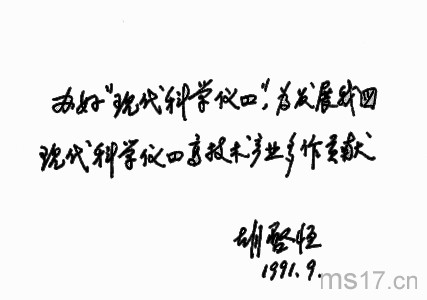 办好"现代科学仪四",为发展我国
现代科学仪四高技术产业多作贡献
胡启恒
1991.9.
ms17.cn